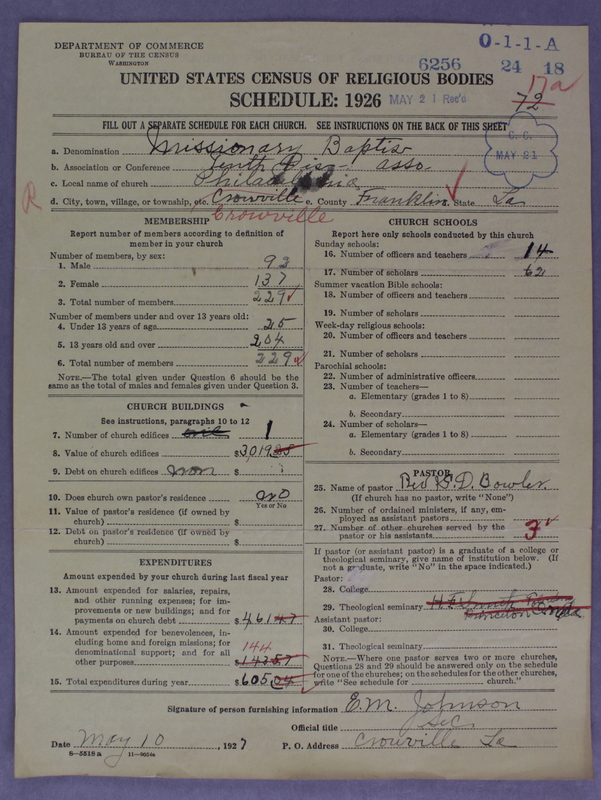 DEPARTMENT OF COMMERCE
BUREAU OF THE CENSUS
WASHINGTON
0-1-1-A
6256 24 18
UNITED STATES CENSUS OF RELIGIOUS BODIES
17a
SCHEDULE: 1926 MAY 21 Rec'd
72
FILL OUT A SEPARATE SCHEDULE FOR EACH CHURCH. SEE INSTRUCTIONS ON THE BACK OF THIS SHEET
C. C.
MAY 21
a. Denomination Missionary Baptist
b. Association or Conference asso.
c. Local name of church Philadelphia
d. City, town, village, or township, etc. Crowville e. County Franklin State La
R Crowville
MEMBERSHIP
Report number of members according to definition of member in your church
Number of members, by sex:
1. Male 92
2. Female 137
3. Total number of members 229
Number of members under and over 13 years old:
4. Under 13 years of age 25
5. 13 years old and over 204
6. Total number of members 229
NOTE.—The total given under Question 6 should be the same as the total of males and females given under Question 3.
CHURCH BUILDINGS
See instructions, paragraphs 10 to 12
7. Number of church edifices 1
8. Value of church edifices $3,019
9. Debt on church edifices non $
10. Does church own pastor's residence no
Yes or No
11. Value of pastor's residence (if owned by church) $
12. Debt on pastor's residence (if owned by church) $
EXPENDITURES
Amount expended by your church during last fiscal year
13. Amount expended for salaries, repairs, and other running expenses; for improvements or new buildings; and for payments on church debt $461 47
14. Amount expended for benevolences, including home and foreign missions; for denominational support; and for all other purposes 144 $143 57
15. Total expenditures during year $605 04
CHURCH SCHOOLS
Report here only schools conducted by this church
Sunday schools:
16. Number of officers and teachers 14
17. Number of scholars 62
Summer vacation Bible schools:
18. Number of officers and teachers
19. Number of scholars
Week-day religious schools:
20. Number of officers and teachers
21. Number of scholars
Parochial schools:
22. Number of administrative officers
23. Number of teachers—
a. Elementary (grades 1 to 8)
b. Secondary
24. Number of scholars—
a. Elementary (grades 1 to 8)
b. Secondary
PASTOR
25. Name of pastor Rev D. Bowler
(If church has no pastor, write "None")
26. Number of ordained ministers, if any, employed as assistant pastors
27. Number of other churches served by the pastor or his assistants 3
If pastor (or assistant pastor) is a graduate of a college or theological seminary, give name of institution below. (If not a graduate, write "No" in the space indicated.)
Pastor:
28. College
29. Theological seminary
Assistant pastor:
30. College
31. Theological seminary
NOTE.—Where one pastor serves two or more churches, Questions 28 and 29 should be answered only on the schedule for one of the churches; on the schedules for the other churches, write "See schedule for church."
Signature of person furnishing information E.M. Johnson
Official title Sec.
Date May 10, 1927 P. O. Address Crowville La
8-5518a 11-9054a